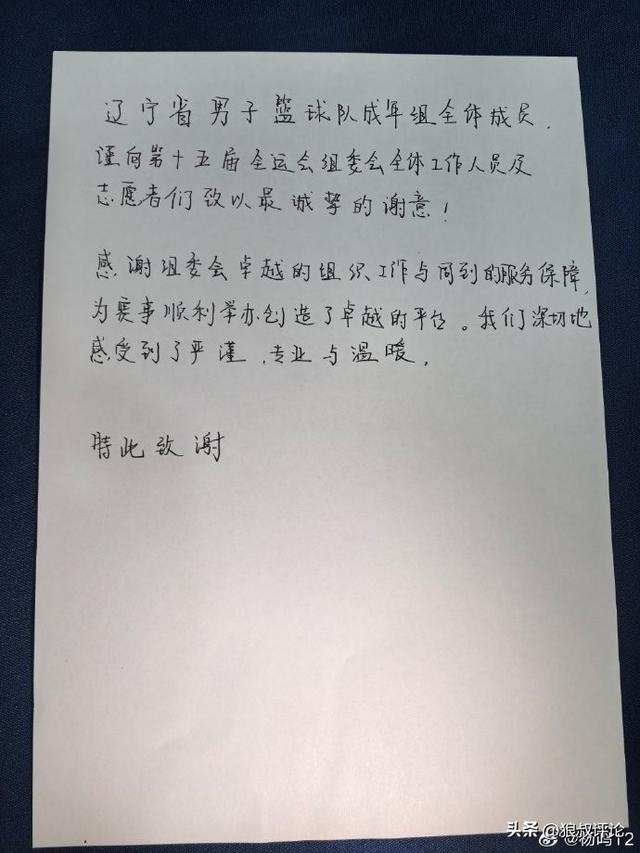 辽宁省男子篮球队成年组全体成员，
谨向第十五届全运会组委会全体工作人员及
志愿者们致以最诚挚的谢意！
感谢组委会卓越的组织工作与周到的服务保障，
为赛事顺利举办创造了卓越的平台。我们深切地
感受到了严谨、专业与温暖。
特此致谢
头条 @狼叔评论
@杨鸣12